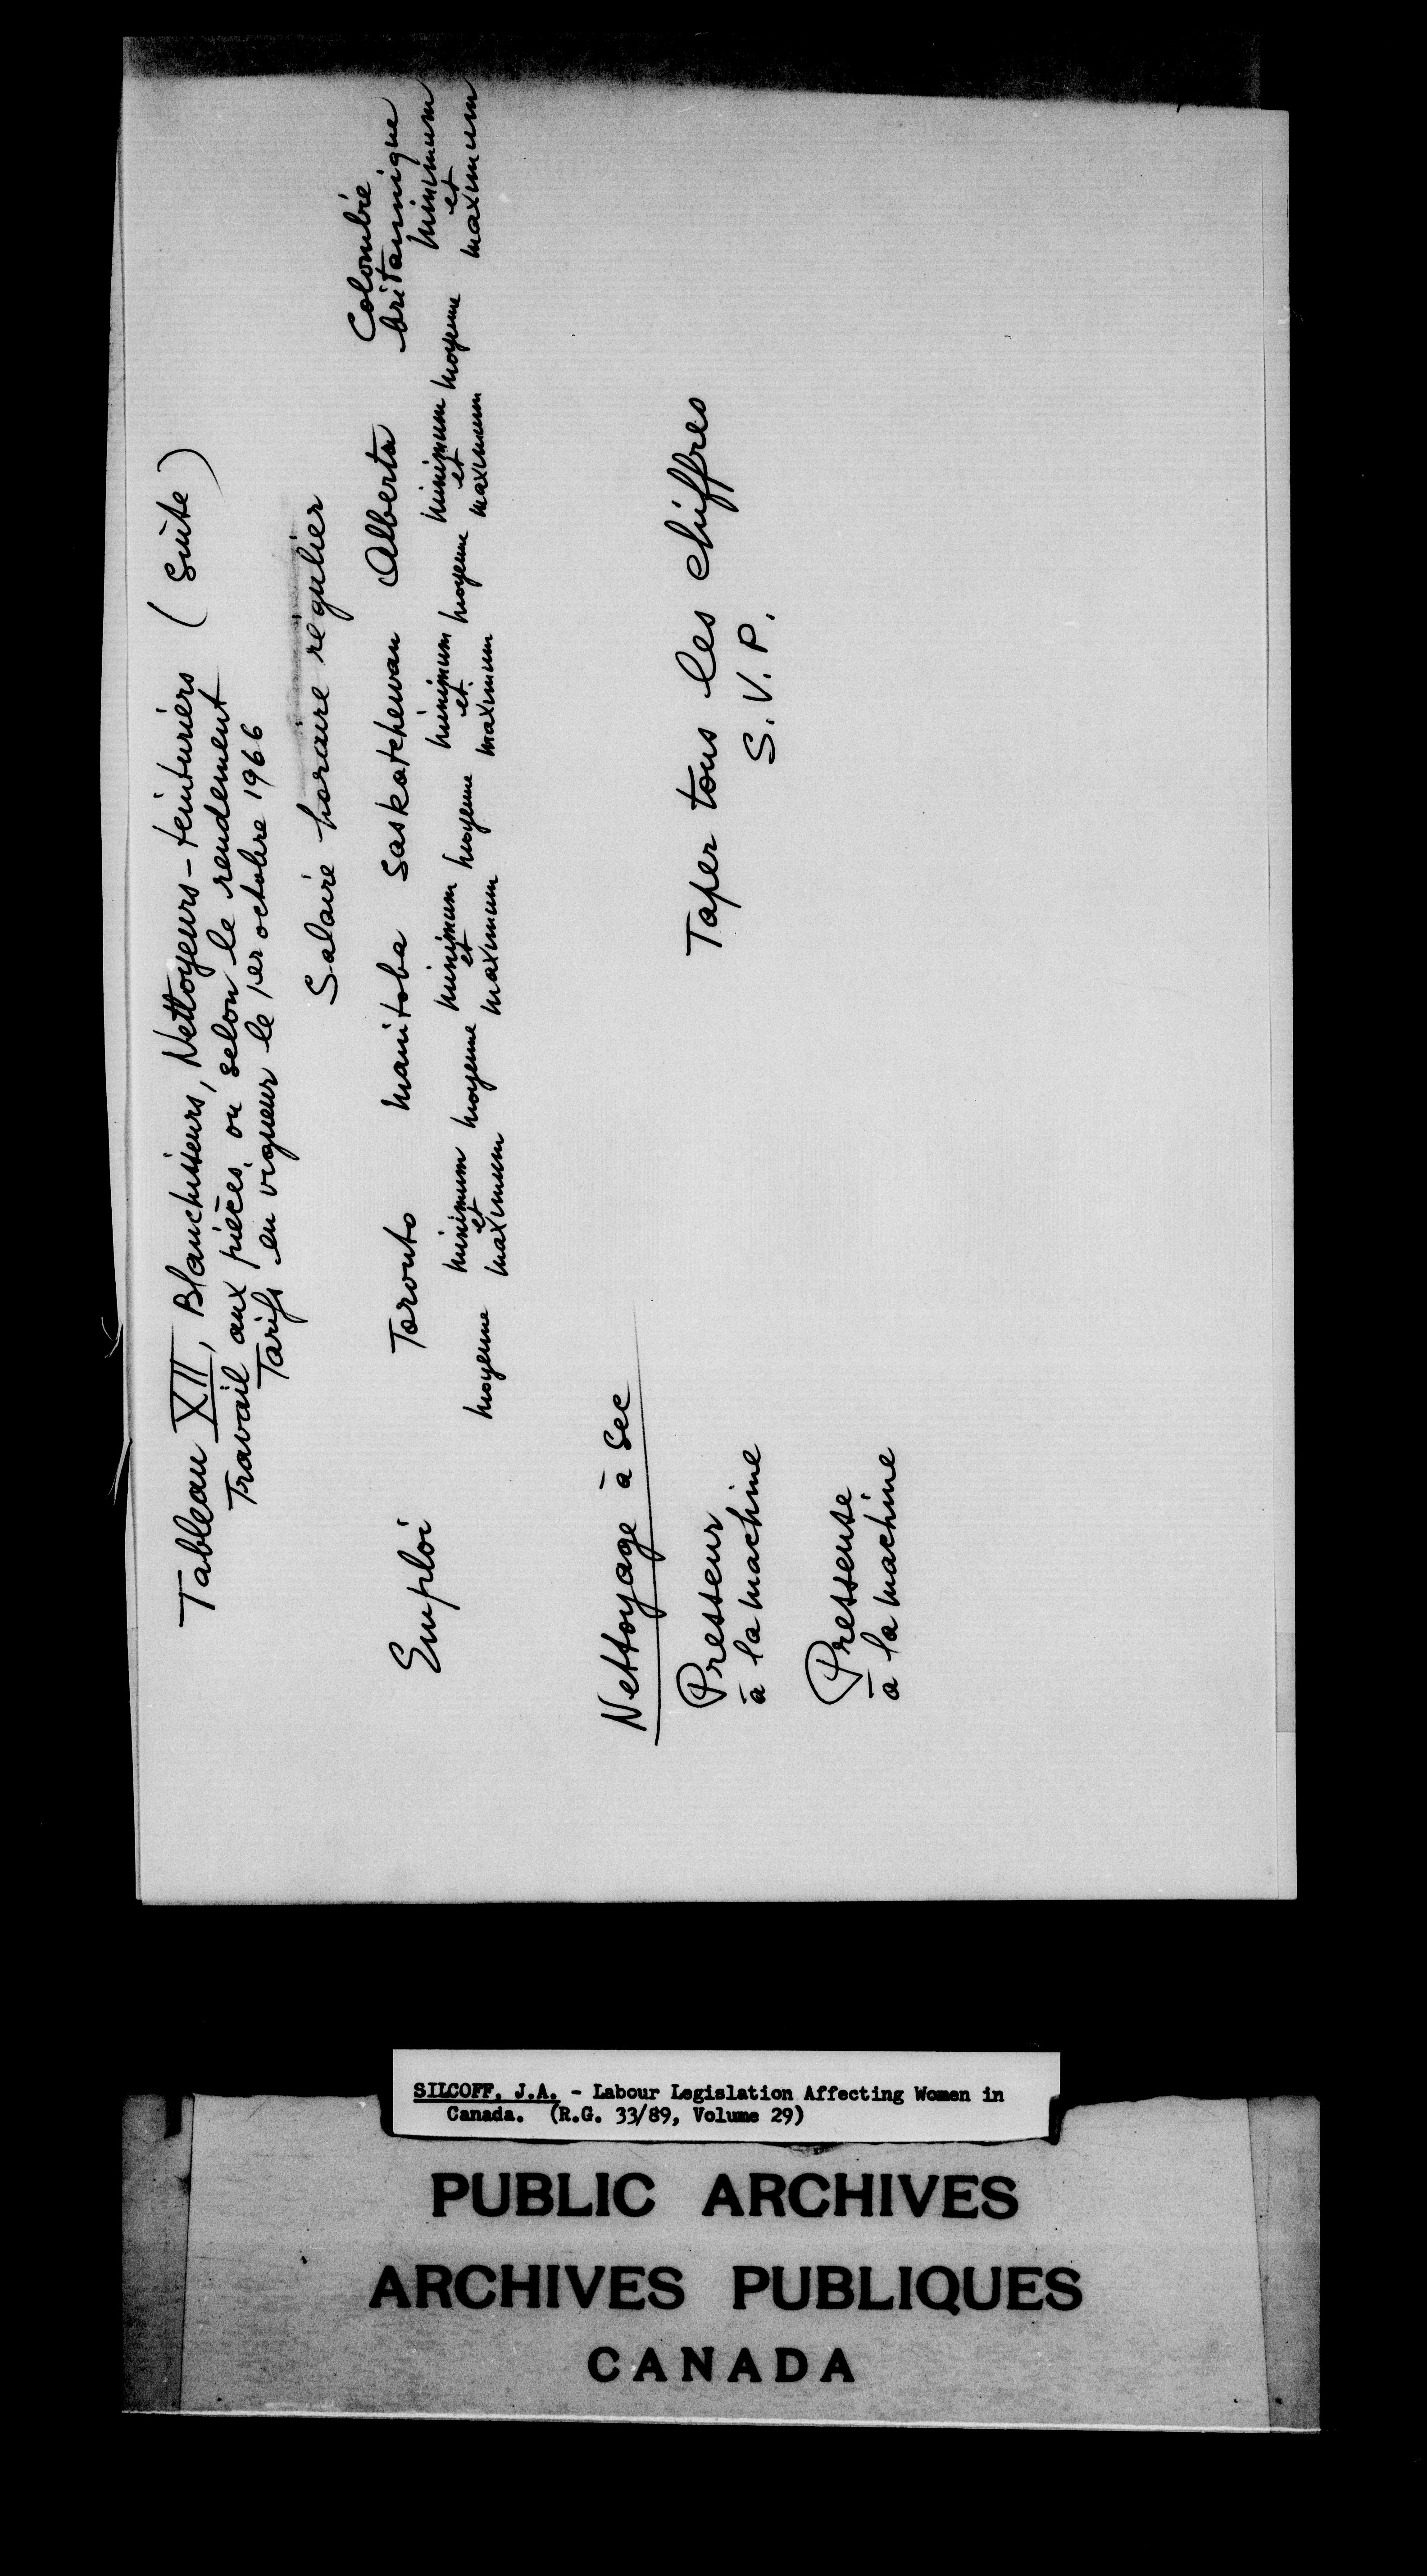 Tableau XII, Blanchisseurs, Nettoyeurs-teinturiers (suite)
Travail aux pièces, ou selon le rendement
Tarifs en vigueur le 1er octobre 1966
Salaire horaire régulier
Emploi Toronto Manitoba Saskatchewan Alberta Colombie
britannique
moyenne minimum moyenne minimum moyenne minimum moyenne minimum moyenne minimum
et et et et et
maximum maximum maximum maximum maximum
Nettoyage à sec
Presseur
à la machine
Taper tous les chiffres
S.V.P.
Presseuse
à la machine
SILCOFF, J.A. - Labour Legislation Affecting Women in
Canada. (R.G. 33/89, Volume 29)
PUBLIC ARCHIVES
ARCHIVES PUBLIQUES
CANADA